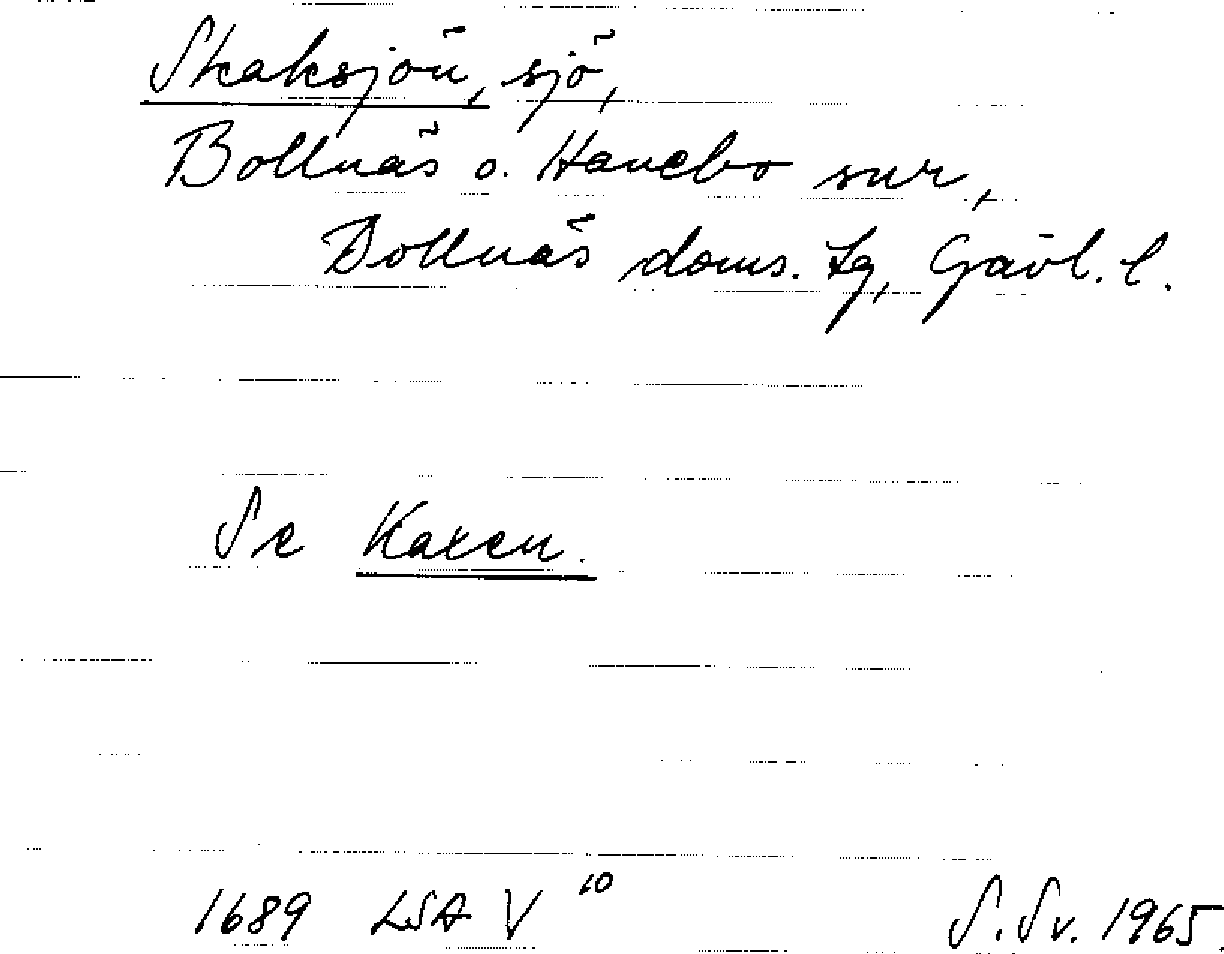 Skaksjön, sjö,
Bollnäs o. Hanebo snr,
Bollnäs doms. Lg, Gävl. l.
Se Kaxen.
1689 LSA V 10
S. Sv. 1965.